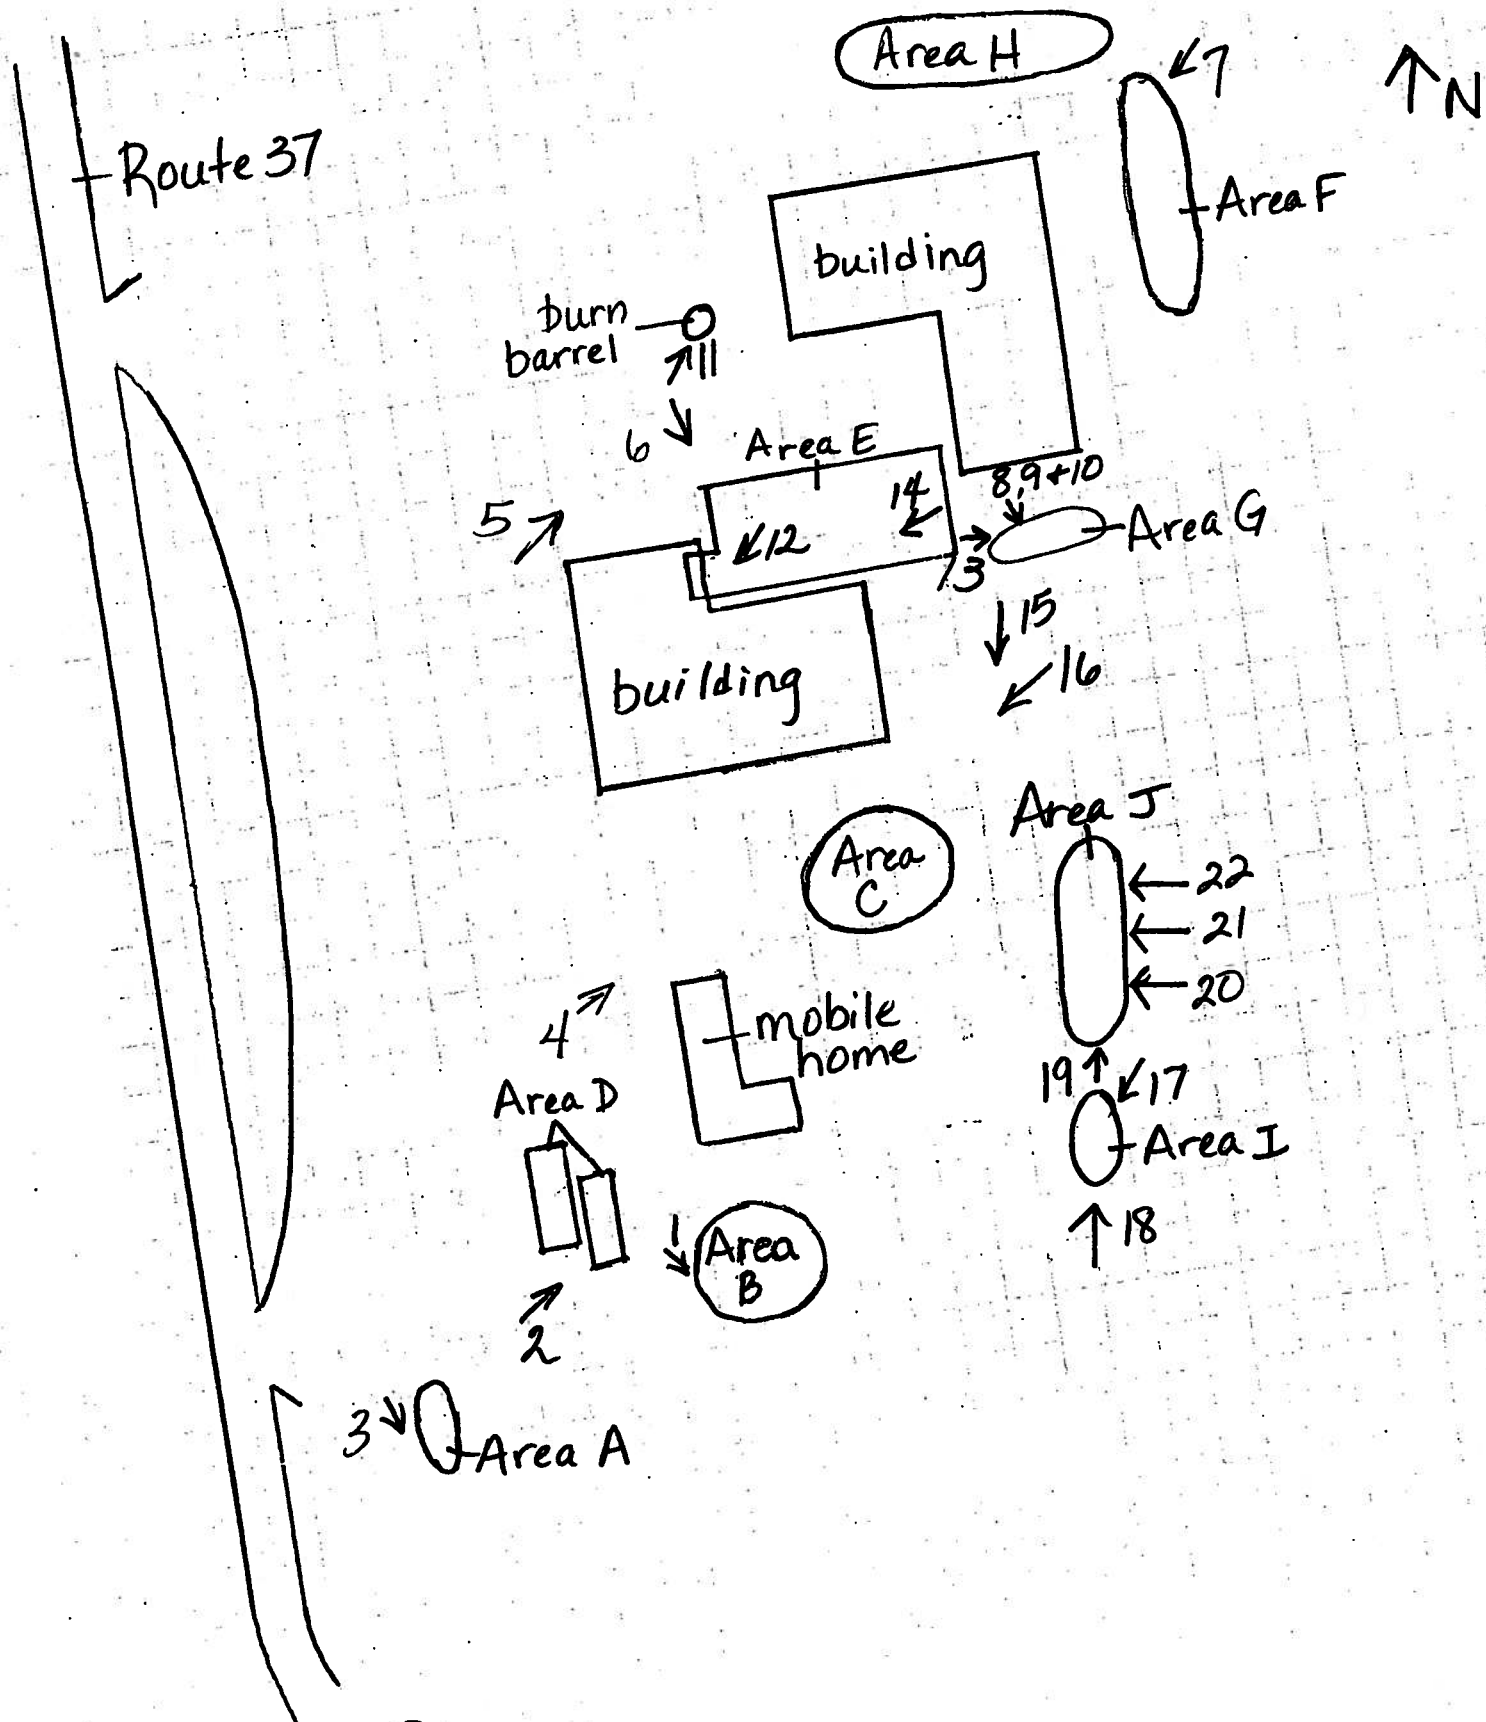 Area H
7
N
Route 37
Area F
building
burn
barrel
11
6
Area E
8,9+10
14
5
Area G
12
13
15
16
building
Area J
Area
C
22
21
20
4
mobile
home
19
17
Area D
Area I
18
1
Area
B
2
3
Area A